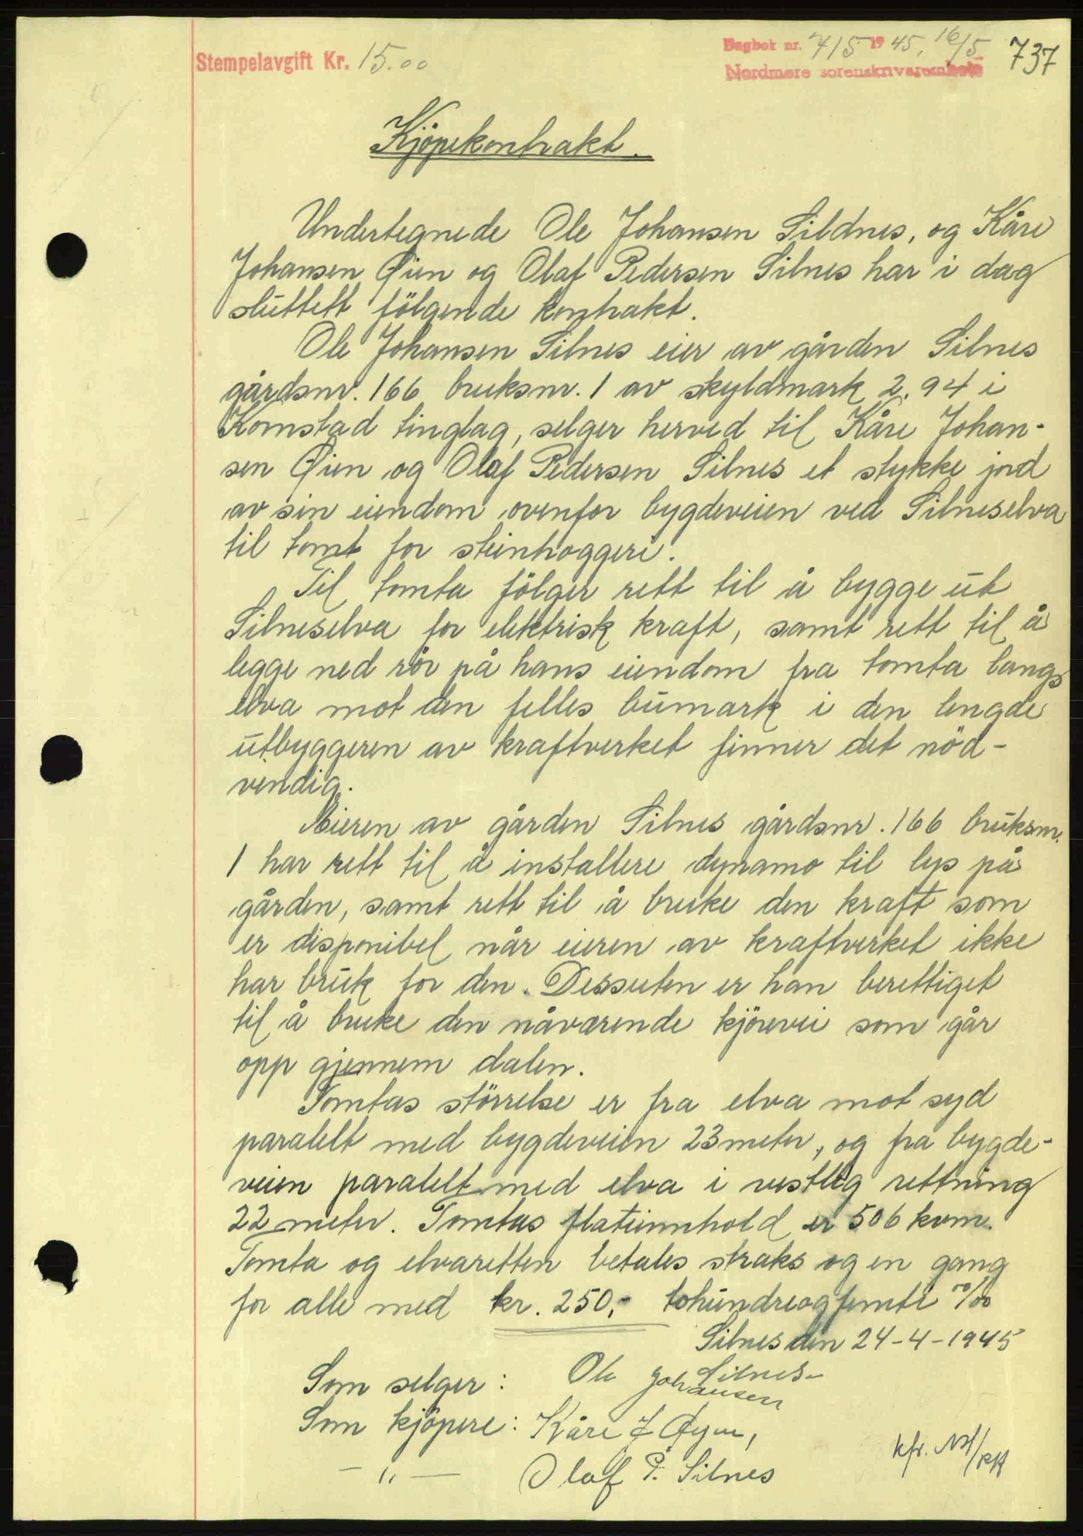 Stempelavgift Kr. 15.00
Dagbok nr. 715 1945, 16/5
Nordmøre sorenskriverembete
737
Kjöpekontrakt.
Undertegnede Ole Johansen Sildnes, og Kåre
Johansen Øien og Olaf Pedersen Silnes har i dag
sluttett fölgende kontrakt.
Ole Johansen Silnes eier av gården Silnes
gårdsnr. 166 bruksnr. 1 av skyldmark 2.94 i
Kornstad tinglag, selger herved til Kåre Johan-
sen Øien og Olaf Pedersen Silnes et stykke jord
av sin eiendom ovenfor bygdeveien ved Silneselva
til tomt for steinhoggeri.
Til tomta fölger rett til å bygge ut
Silneselva for elektrisk kraft, samt rett til å
legge ned rör på hans eiendom fra tomta langs
elva mot den felles bumark i den lengde
utbyggeren av kraftverket finner det nöd-
vendig.
Eieren av gården Silnes gårdsnr. 166 bruksnr.
1 har rett til å installere dynamo til lys på
gården, samt rett til å bruke den kraft som
er disponibel når eieren av kraftverket ikke
har bruk for den. Dessuten er han berettiget
til å bruke den nåværende kjörevei som går
opp gjennem dalen.
Tomtas störrelse er fra elva mot syd
paralelt med bygdeveien 23 meter, og fra bygde-
veien paralelt med elva i vestlig rettning
22 meter. Tomtas flateinnhold er 506 kvm.
Tomta og elvaretten betales straks og en gang
for alle med kr. 250,- tohundreogfemti 00/00
Silnes den 24-4-1945
Som selger: Ole Johansen Silnes-
Som kjöpere: Kåre J Øyen,
— " — Olaf P. Silnes
kfr. NH/RH